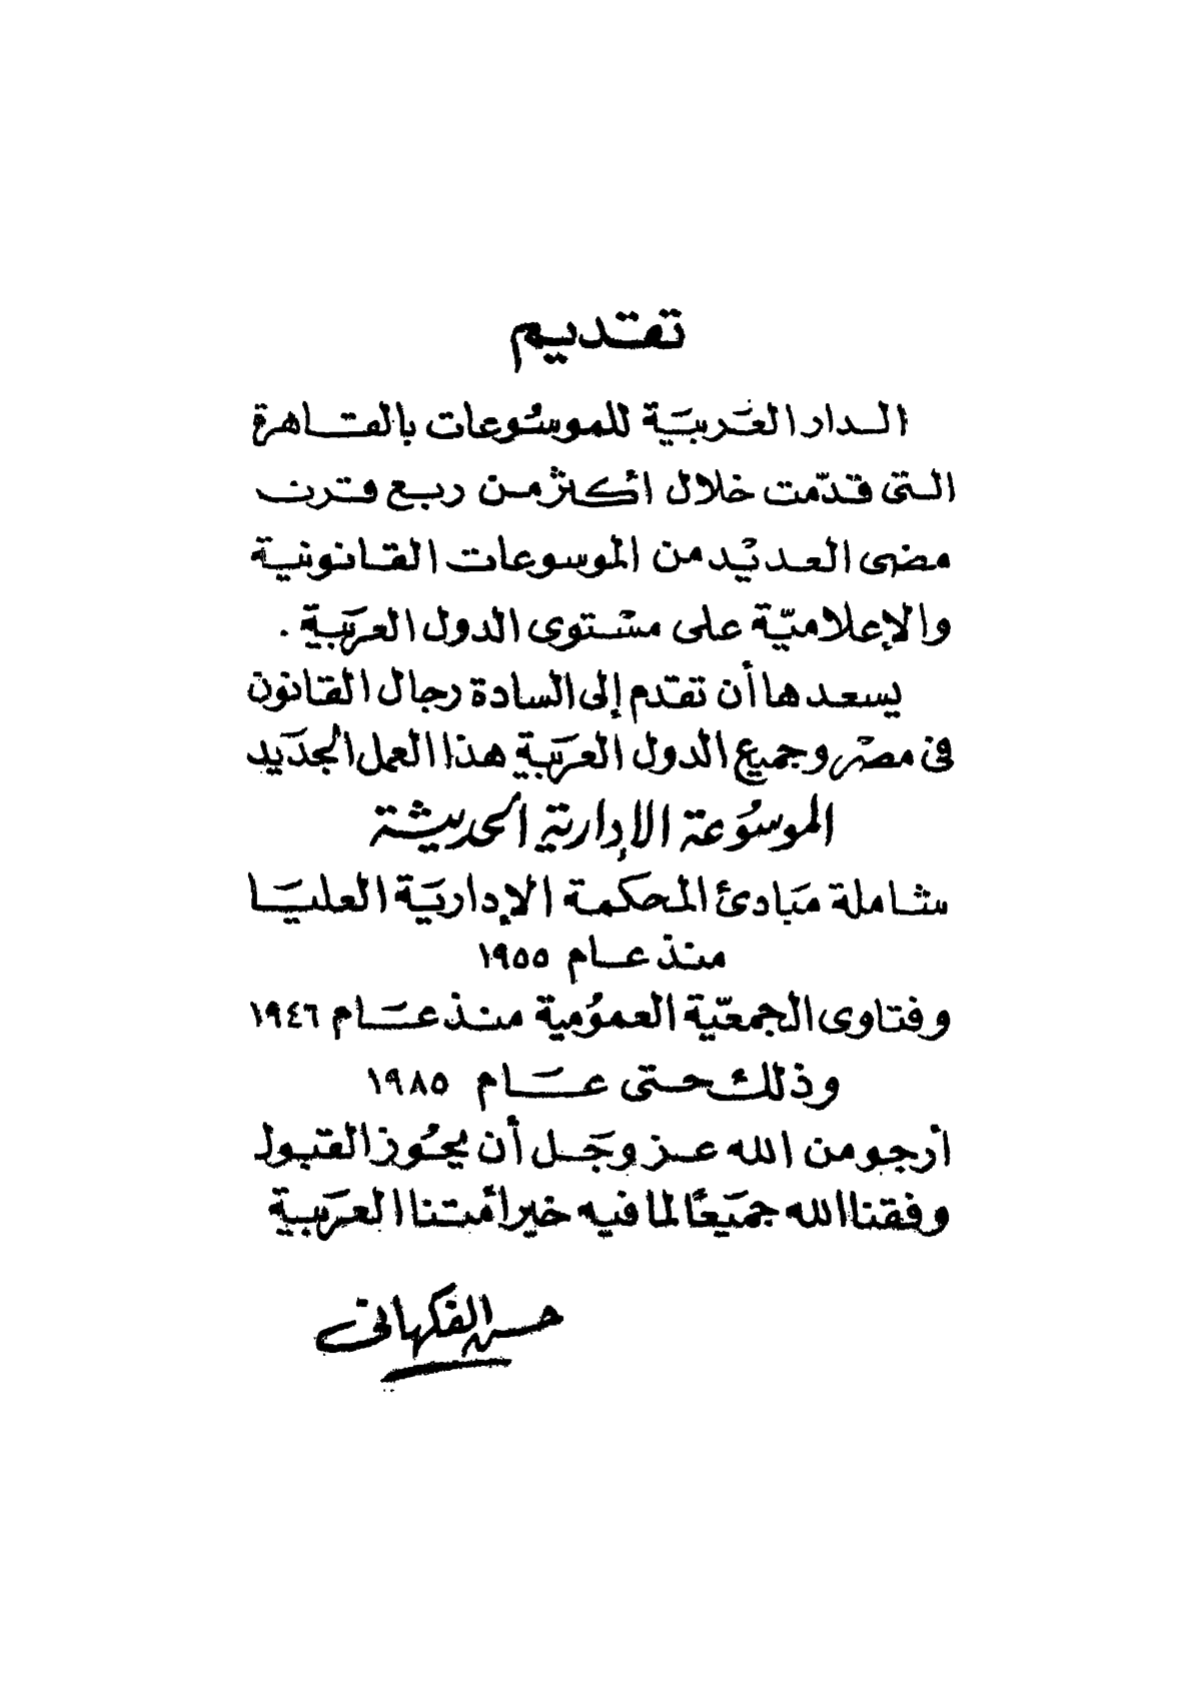 تقديم
الدار العربية للموسوعات بالقاهرة
التى قدّمت خلال أكثر من ربع قرن
مضى العديد من الموسوعات القانونية
والإعلاميّة على مستوى الدول العربية .
يسعدها أن تقدم إلى السادة رجال القانون
فى مصر وجميع الدول العربية هذا العمل الجديد
الموسوعة الإدارية الحديثة
شاملة مبادئ المحكمة الإدارية العليا
منذ عام ١٩٥٥
وفتاوى الجمعيّة العمومية منذ عام ١٩٤٦
وذلك حتى عام ١٩٨٥
أرجو من الله عز وجل أن يحوز القبول
وفقنا الله جميعًا لما فيه خير أمتنا العربية
حسن الفكهانى